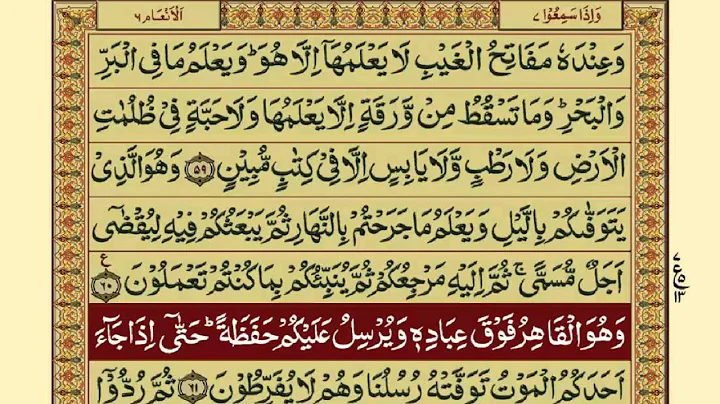 وَاِذَا سَمِعُوْا ٧
اَلْاَنْعَام ٦
وَعِنْدَهٗ مَفَاتِحُ الْغَيْبِ لَا يَعْلَمُهَاۤ اِلَّا هُوَ ؕ وَيَعْلَمُ مَا فِى الْبَرِّ
وَالْبَحْرِ ؕ وَمَا تَسْقُطُ مِنْ وَّرَقَةٍ اِلَّا يَعْلَمُهَا وَلَا حَبَّةٍ فِىْ ظُلُمٰتِ
الْاَرْضِ وَلَا رَطْبٍ وَّلَا يَابِسٍ اِلَّا فِىْ كِتٰبٍ مُّبِيْنٍ ۝٥٩ وَهُوَ الَّذِىْ
يَتَوَفّٰٮكُمْ بِالَّيْلِ وَيَعْلَمُ مَا جَرَحْتُمْ بِالنَّهَارِ ثُمَّ يَبْعَثُكُمْ فِيْهِ لِيُقْضٰٓى
اَجَلٌ مُّسَمًّى ۚ ثُمَّ اِلَيْهِ مَرْجِعُكُمْ ثُمَّ يُنَبِّئُكُمْ بِمَا كُنْتُمْ تَعْمَلُوْنَ ۝٦٠ ع
وَهُوَ الْقَاهِرُ فَوْقَ عِبَادِهٖ وَيُرْسِلُ عَلَيْكُمْ حَفَظَةً ؕ حَتّٰٓى اِذَا جَآءَ
اَحَدَكُمُ الْمَوْتُ تَوَفَّتْهُ رُسُلُنَا وَهُمْ لَا يُفَرِّطُوْنَ ۝٦١ ثُمَّ رُدُّوْۤا